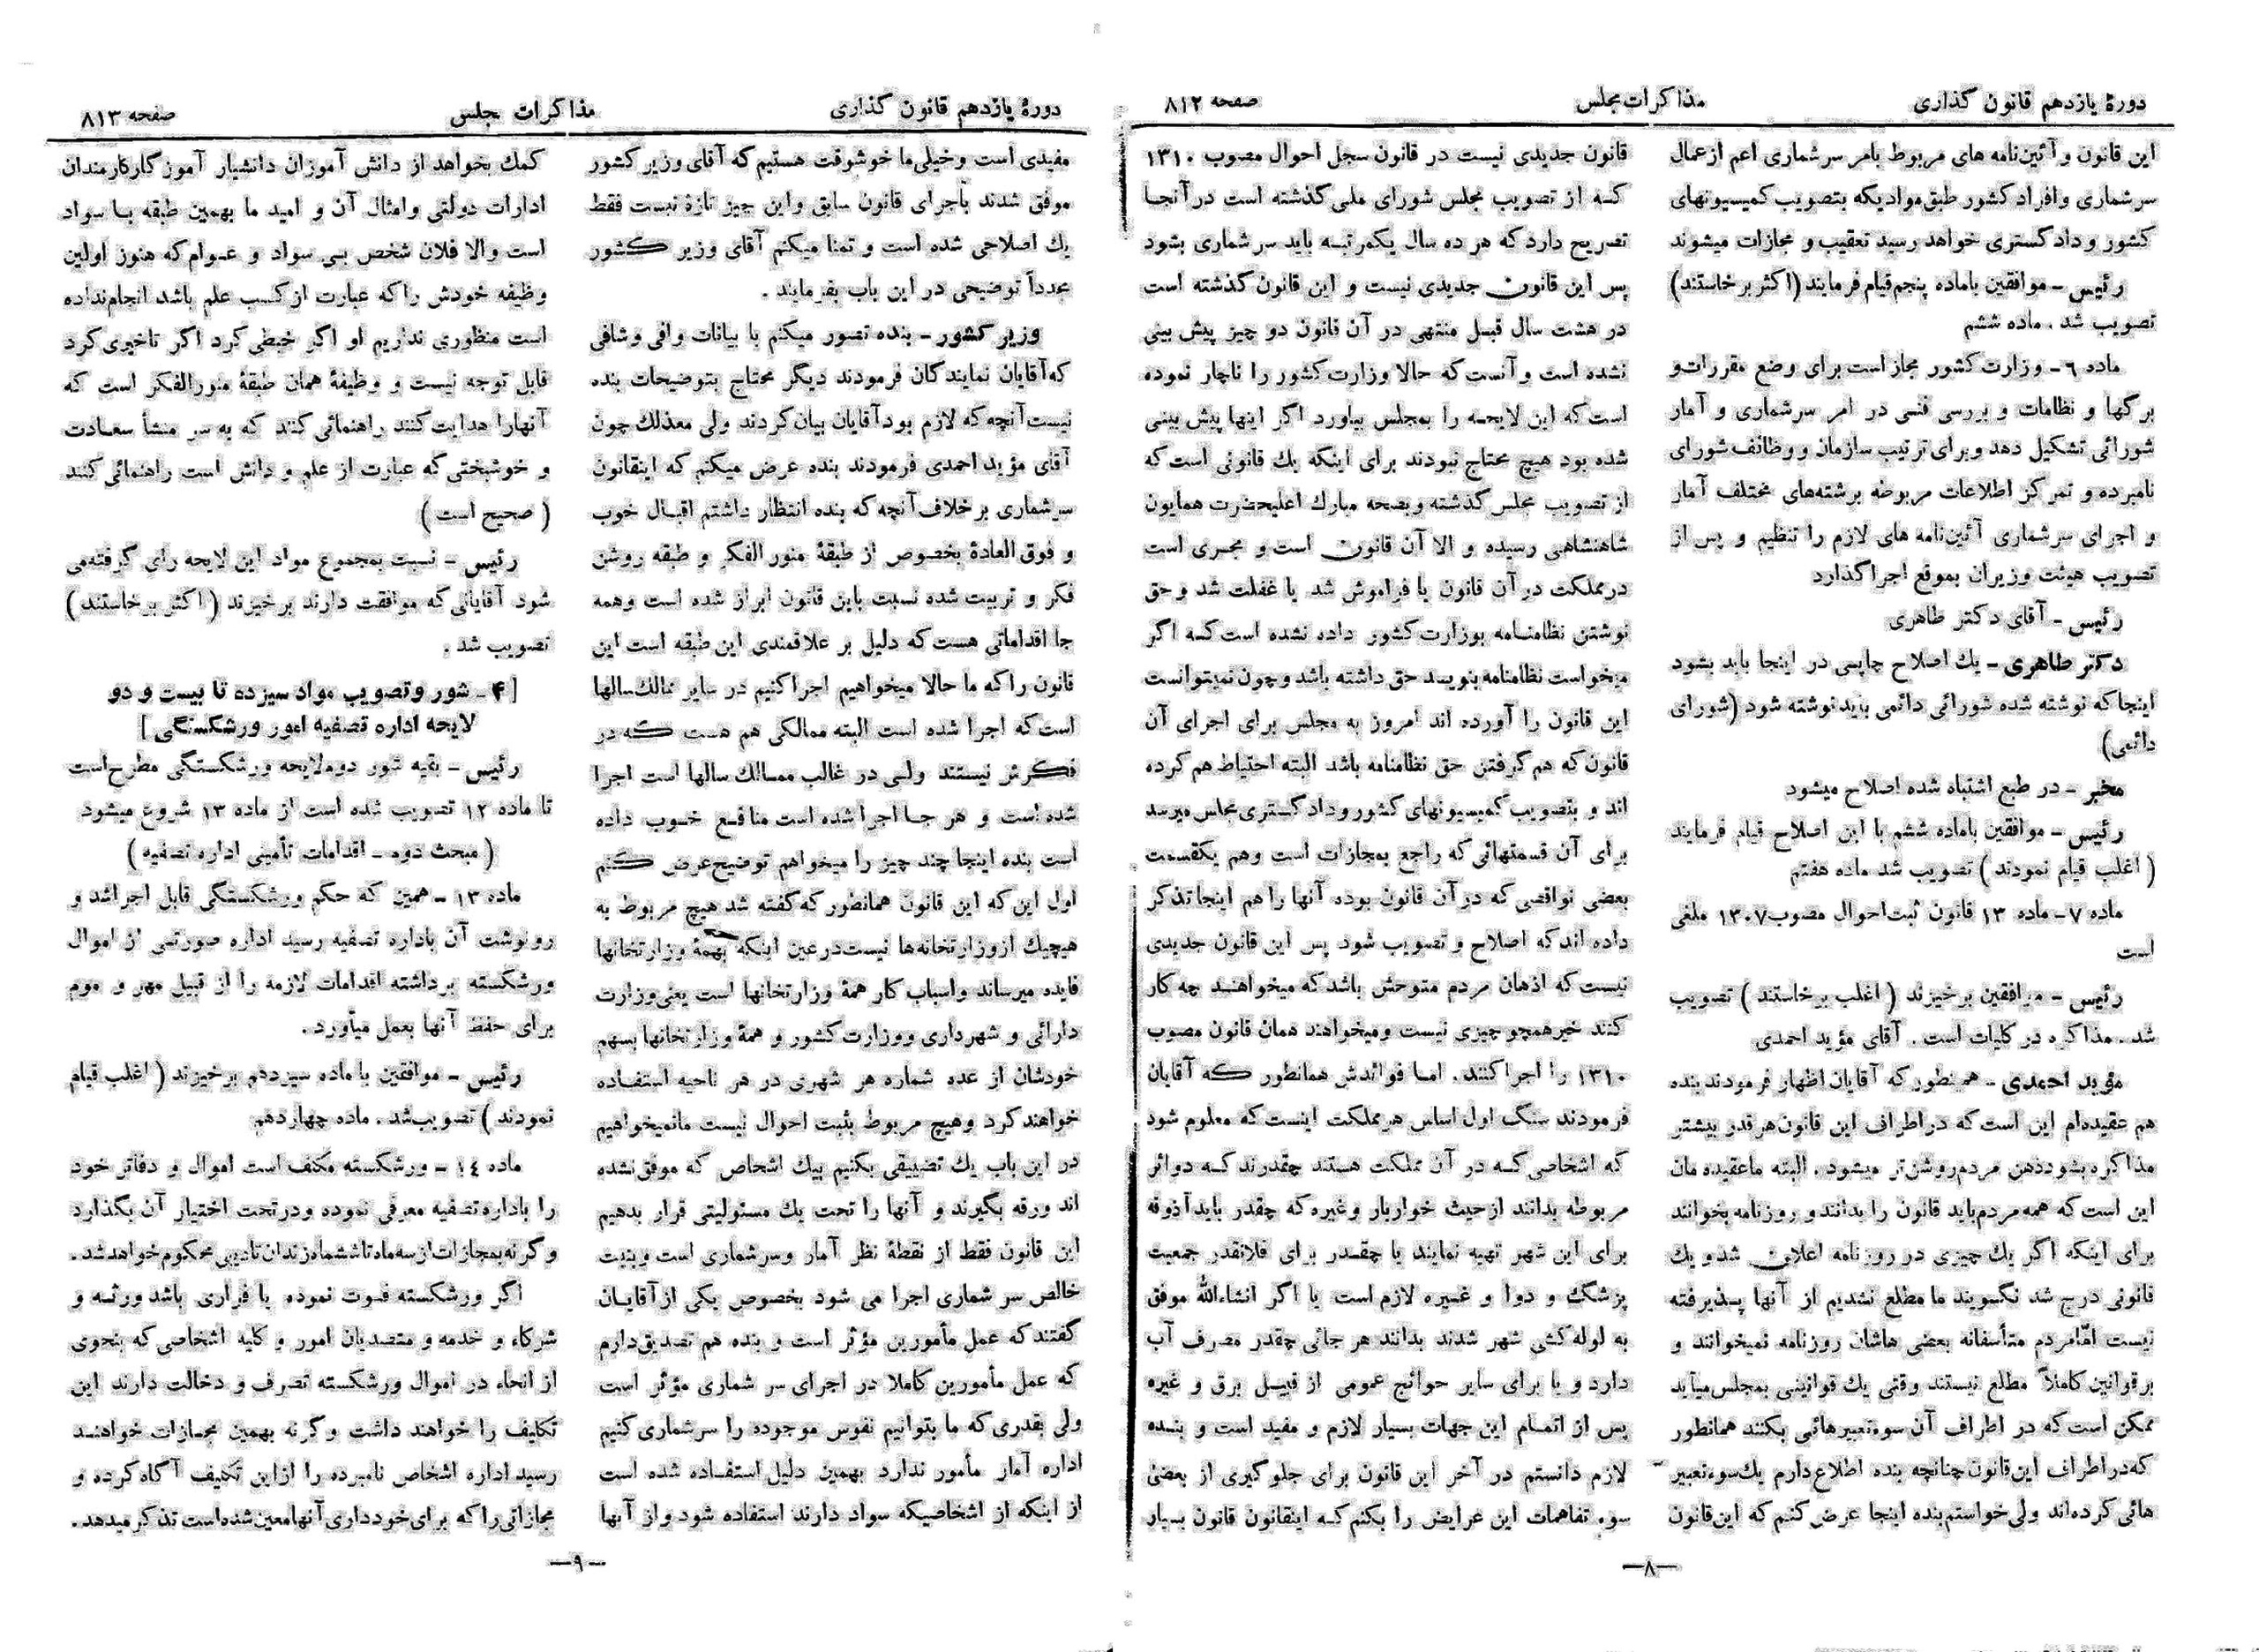 دورهٔ یازدهم قانون گذاری
مذاکرات مجلس
صفحه ۸۱۲
این قانون و آئین‌نامه های مربوط بامر سرشماری اعم از عمال
سرشماری و افراد کشور طبق موادیکه بتصویب کمیسیونهای
کشور و دادگستری خواهد رسید تعقیب و مجازات میشوند
رئیس - موافقین باماده پنجم قیام فرمایند (اکثر برخاستند)
تصویب شد . ماده ششم
ماده ٦- وزارت کشور مجاز است برای وضع مقررات و
برگها و نظامات و بررسی فنی در امر سرشماری و آمار
شورائی تشکیل دهد و برای ترتیب سازمان و وظائف شورای
نامبرده و تمرکز اطلاعات مربوطه برشته‌های مختلف آمار
و اجرای سرشماری آئین‌نامه های لازم را تنظیم و پس از
تصویب هیئت وزیران بموقع اجرا گذارد
رئیس - آقای دکتر طاهری
دکتر طاهری - یك اصلاح چاپی در اینجا باید بشود
اینجا که نوشته شده شورائی دائمی باید نوشته شود (شورای
دائمی)
مخبر - در طبع اشتباه شده اصلاح میشود
رئیس - موافقین باماده ششم با این اصلاح قیام فرمایند
( اغلب قیام نمودند ) تصویب شد ماده هفتم
ماده ۷- ماده ۱۳ قانون ثبت احوال مصوب ۱۳۰۷ ملغی
است
رئیس - موافقین برخیزند ( اغلب برخاستند ) تصویب
شد . مذاکره در کلیات است . آقای مؤید احمدی
مؤید احمدی - همینطور که آقایان اظهار فرمودند بنده
هم عقیده‌ام این است که در اطراف این قانون هرقدر بیشتر
مذاکره بشود ذهن مردم روشن‌تر میشود . البته ما عقیده مان
این است که همه مردم باید قانون را بدانند و روزنامه بخوانند
برای اینکه اگر یك چیزی در روزنامه اعلان شد و یك
قانونی درج شد نگویند ما مطلع نشدیم از آنها پذیرفته
نیست امّا مردم متأسفانه بعضی هاشان روزنامه نمیخوانند و
بر قوانین کاملاً مطلع نیستند وقتی یك قوانینی بمجلس میآید
ممکن است که در اطراف آن سوء تعبیرهائی بکنند همانطور
که در اطراف این قانون چنانچه بنده اطلاع دارم یك سوء تعبیر
هائی کرده‌اند ولی خواستم بنده اینجا عرض کنم که این قانون
قانون جدیدی نیست در قانون سجل احوال مصوب ۱۳۱۰
که از تصویب مجلس شورای ملی گذشته است در آنجا
تصریح دارد که هر ده سال یکمرتبه باید سر شماری بشود
پس این قانون جدیدی نیست و این قانون گذشته است
در هشت سال قبل منتهی در آن قانون دو چیز پیش بینی
نشده است و آنست که حالا وزارت کشور را ناچار نموده
است که این لایحه را بمجلس بیاورد اگر اینها پیش بینی
شده بود هیچ محتاج نبودند برای اینکه یك قانونی است که
از تصویب مجلس گذشته و بصحه مبارك اعلیحضرت همایون
شاهنشاهی رسیده و الا آن قانون است و مجری است
در مملکت در آن قانون یا فراموش شد یا غفلت شد و حق
نوشتن نظامنامه بوزارت کشور داده نشده است که اگر
میخواست نظامنامه بنویسد حق داشته باشد و چون نمیتوانست
این قانون را آورده اند امروز به مجلس برای اجرای آن
قانون که هم گرفتن حق نظامنامه باشد البته احتیاط هم کرده
اند و بتصویب کمیسیونهای کشور و دادگستری مجلس میرسد
برای آن قسمتهائی که راجع بمجازات است وهم یکقسمت
بعضی نواقصی که در آن قانون بوده آنها را هم اینجا تذکر
داده اند که اصلاح و تصویب شود. پس این قانون جدیدی
نیست که اذهان مردم متوحش باشد که میخواهند چه کار
کنند خیر همچو چیزی نیست و میخواهند همان قانون مصوب
۱۳۱۰ را اجرا کنند . اما فوائدش همانطور که آقایان
فرمودند سنگ اول اساس هر مملکت اینست که معلوم شود
که اشخاصی که در آن مملکت هستند چقدرند که دوائر
مربوطه بدانند از حیث خواربار و غیره که چقدر باید آذوقه
برای این شهر تهیه نمایند یا چقدر برای فلانقدر جمعیت
پزشگ و دوا و غیره لازم است یا اگر انشاءالله موفق
به لوله کشی شهر شدند بدانند هر جائی چقدر مصرف آب
دارد و یا برای سایر حوائج عمومی از قبیل برق و غیره
پس از اتمام این جهات بسیار لازم و مفید است و بنده
لازم دانستم در آخر این قانون برای جلو گیری از بعضی
سوء تفاهمات این عرایض را بکنم که اینقانون قانون بسیار
—۸—
دورهٔ یازدهم قانون گذاری
مذاکرات مجلس
صفحه ۸۱۳
مفیدی است و خیلی ما خوشوقت هستیم که آقای وزیر کشور
موفق شدند بأجرای قانون سابق و این چیز تازهٔ نیست فقط
یك اصلاحی شده است و تمنا میکنم آقای وزیر کشور
مجدداً توضیحی در این باب بفرمایند .
وزیر کشور - بنده تصور میکنم با بیانات وافی و شافی
که آقایان نمایندگان فرمودند دیگر محتاج بتوضیحات بنده
نیست آنچه که لازم بود آقایان بیان کردند ولی معذلك چون
آقای مؤید احمدی فرمودند بنده عرض میکنم که اینقانون
سرشماری برخلاف آنچه که بنده انتظار داشتم اقبال خوب
و فوق العادهٔ بخصوص از طبقهٔ منور الفکر و طبقه روشن
فکر و تربیت شده نسبت باین قانون ابراز شده است وهمه
جا اقداماتی هست که دلیل بر علاقمندی این طبقه است این
قانون را که ما حالا میخواهیم اجرا کنیم در سایر ممالك سالها
است که اجرا شده است البته ممالکی هم هست که در
فکرش نیستند ولی در غالب ممالك سالها است اجرا
شده است و هر جا اجرا شده است منافع خوب داده
است بنده اینجا چند چیز را میخواهم توضیح عرض کنم
اول این که این قانون همانطور که گفته شد هیچ مربوط به
هیچیك از وزارتخانه‌ها نیست در عین اینکه بهمهٔ وزارتخانها
فایده میرساند و اسباب کار همهٔ وزارتخانها است یعنی وزارت
دارائی و شهرداری و وزارت کشور و همهٔ وزارتخانها بسهم
خودشان از عده شماره هر شهری در هر ناحیه استفاده
خواهند کرد و هیچ مربوط بثبت احوال نیست ما نمیخواهیم
در این باب یك تضییقی بکنیم بیك اشخاص که موفق نشده
اند ورقه بگیرند و آنها را تحت یك مسئولیتی قرار بدهیم
این قانون فقط از نقطهٔ نظر آمار و سرشماری است و بنیت
خالص سر شماری اجرا می شود بخصوص یکی از آقایان
گفتند که عمل مأمورین مؤثر است و بنده هم تصدیق دارم
که عمل مأمورین کاملا در اجرای سر شماری مؤثر است
ولی بقدری که ما بتوانیم نفوس موجوده را سرشماری کنیم
اداره آمار مأمور ندارد بهمین دلیل استفاده شده است
از اینکه از اشخاصیکه سواد دارند استفاده شود و از آنها
کمك بخواهد از دانش آموزان دانشیار آموزگار کارمندان
ادارات دولتی و امثال آن و امید ما بهمین طبقه با سواد
است والا فلان شخص بی سواد و عوام که هنوز اولین
وظیفه خودش را که عبارت از کسب علم باشد انجام نداده
است منظوری نداریم او اگر خبطی کرد اگر تاخیری کرد
قابل توجه نیست و وظیفهٔ همان طبقهٔ منورالفکر است که
آنهارا هدایت کنند راهنمائی کنند که به سر منشأ سعادت
و خوشبختی که عبارت از علم و دانش است راهنمائی کنند
( صحیح است )
رئیس - نسبت بمجموع مواد این لایحه رای گرفته می
شود آقایانی که موافقت دارند برخیزند ( اکثر برخاستند )
تصویب شد .
[ ۴ - شور و تصویب مواد سیزده تا بیست و دو
لایحه اداره تصفیه امور ورشکستگی ]
رئیس - بقیه شور دوم لایحه ورشکستگی مطرح است
تا ماده ۱۲ تصویب شده است از ماده ۱۳ شروع میشود
( مبحث دوم - اقدامات تأمینی اداره تصفیه )
ماده ۱۳ - همین که حکم ورشکستگی قابل اجرا شد و
رونوشت آن باداره تصفیه رسید اداره صورتی از اموال
ورشکسته برداشته اقدامات لازمه را از قبیل مهر و موم
برای حفظ آنها بعمل میآورد .
رئیس - موافقین با ماده سیزدهم برخیزند ( اغلب قیام
نمودند ) تصویب شد . ماده چهاردهم
ماده ١٤ - ورشکسته مکلف است اموال و دفاتر خود
را باداره تصفیه معرفی نموده و در تحت اختیار آن بگذارد
و گرنه بمجازات از سه ماه تا ششماه زندان تادیبی محکوم خواهد شد .
اگر ورشکسته فوت نموده یا فراری باشد ورثه و
شرکاء و خدمه و متصدیان امور و کلیه اشخاصی که بنحوی
از انحاء در اموال ورشکسته تصرف و دخالت دارند این
تکلیف را خواهند داشت و گرنه بهمین مجازات خواهند
رسید اداره اشخاص نامبرده را از این تکلیف آگاه کرده و
مجازاتی را که برای خودداری آنها معین شده است تذکر میدهد .
—۹—